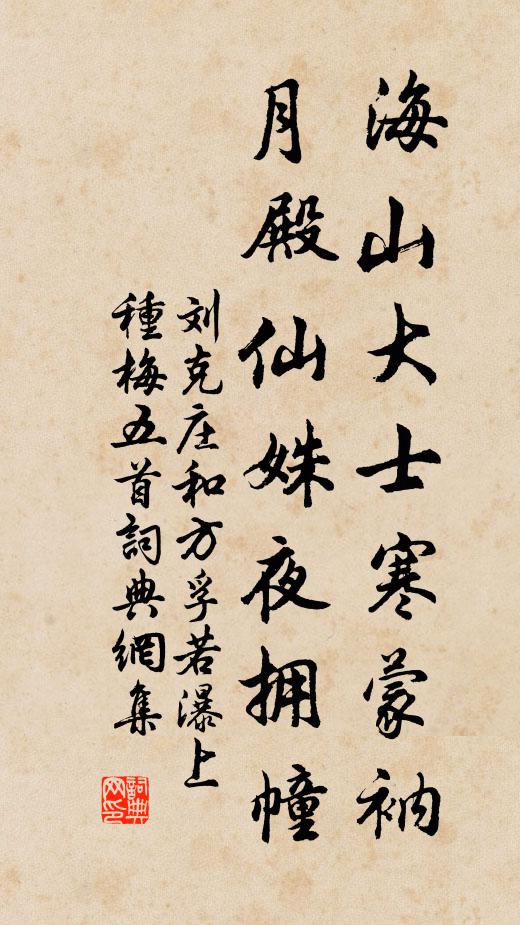 海山大士寒蒙衲
月殿仙姝夜拥幢
刘克庄和方孚若瀑上
種梅五首詞典網集
詞典
网印